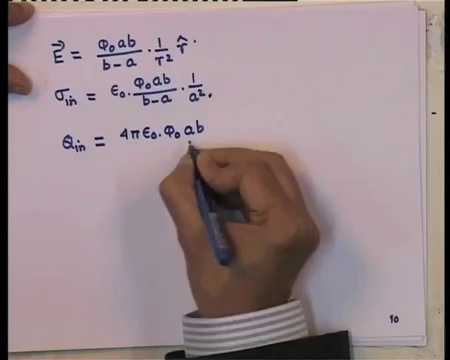 E⃗ = φ₀ab/(b-a) · 1/r² r̂.
σin = ε₀. φ₀ab/(b-a) . 1/a².
Qin = 4πε₀. φ₀ab
10